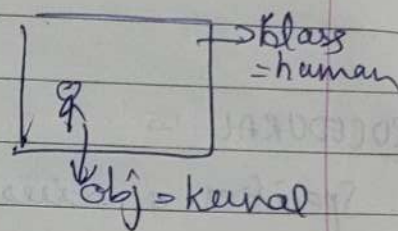 class
=human
obj = kunal